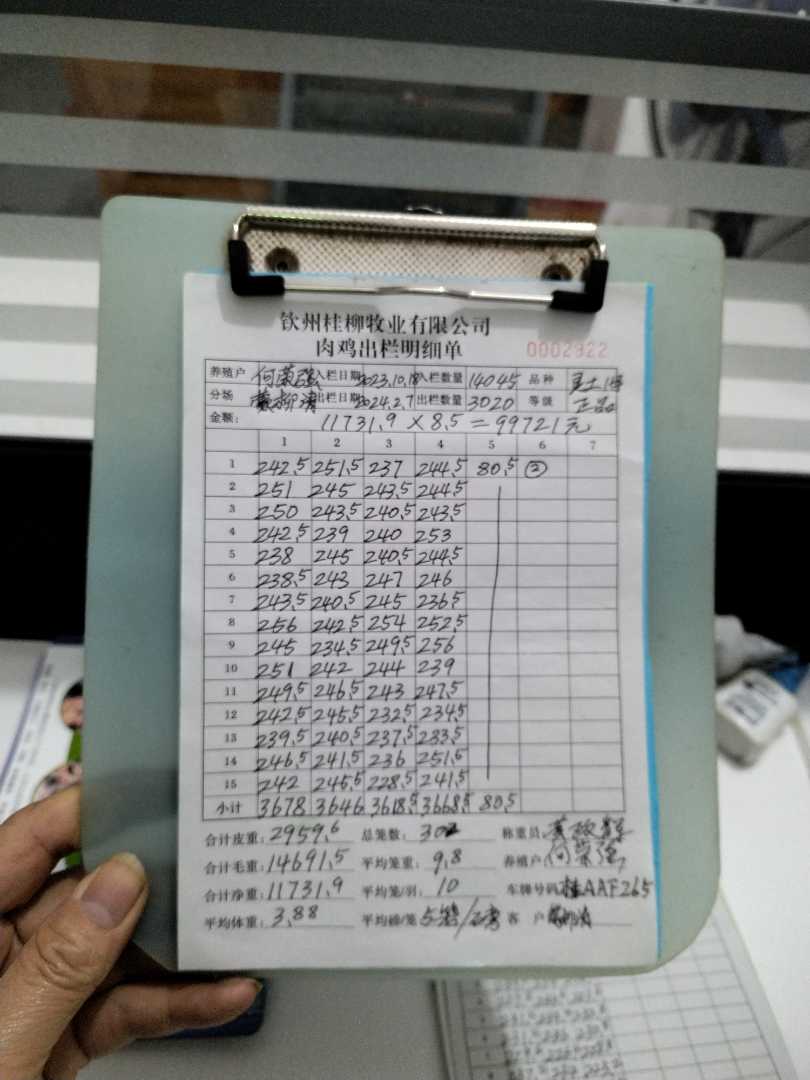 钦州桂柳牧业有限公司
肉鸡出栏明细单 0002922
养殖户 何荣强 入栏日期 2023.10.18 入栏数量 14045 品种
分场 黄柳清 出栏日期 2024.2.7 出栏数量 3020 等级 正品
金额: 11731.9 × 8.5 = 99721元
1 2 3 4 5 6 7
1 242.5 251.5 237 244.5 80.5 ②
2 251 245 243.5 244.5
3 250 243.5 240.5 243.5
4 242.5 239 240 253
5 238 245 240.5 244.5
6 238.5 243 247 246
7 243.5 240.5 245 236.5
8 256 242.5 254 252.5
9 245 234.5 249.5 256
10 251 242 244 239
11 249.5 246.5 243 247.5
12 242.5 245.5 232.5 234.5
13 239.5 240.5 237.5 233.5
14 246.5 241.5 236 251.5
15 242 245.5 228.5 241.5
小计 3678 3646 3618.5 3668.5 80.5
合计皮重: 2959.6 总笼数: 302 称重员:
合计毛重: 14691.5 平均笼重: 9.8 养殖户: 何荣强
合计净重: 11731.9 平均笼/羽: 10 车牌号码 桂AAF265
平均体重: 3.88 平均磅/笼 5笼/磅 客户